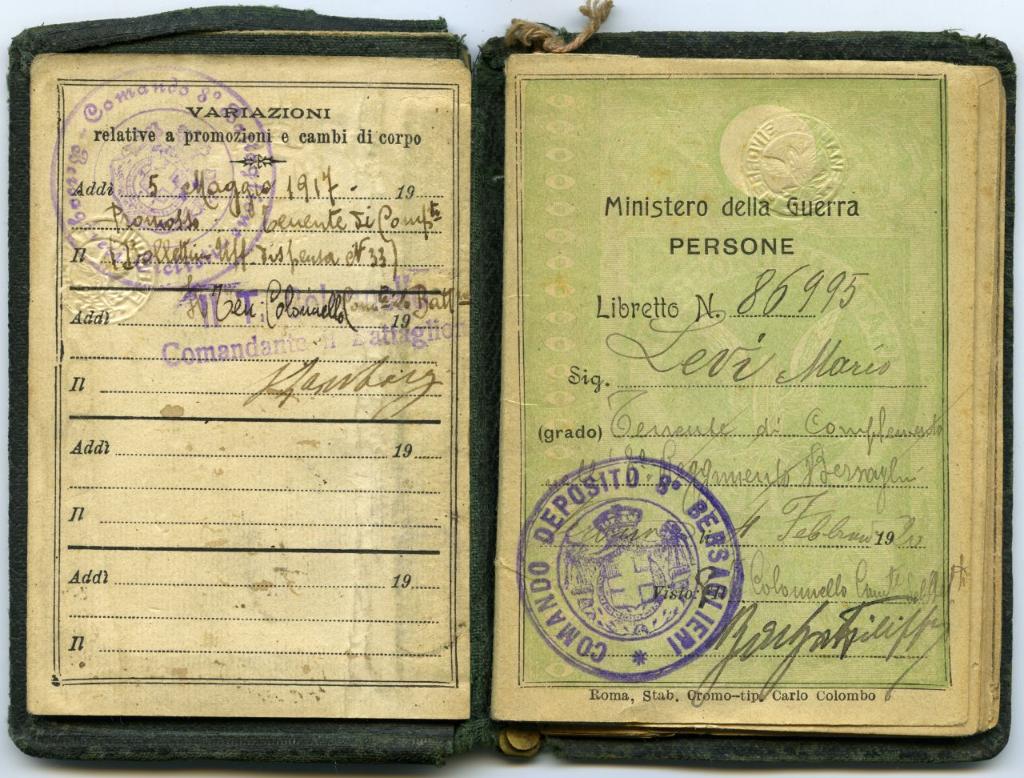 VARIAZIONI
relative a promozioni e cambi di corpo
Addì 5 Maggio 1917 19
Promosso Tenente di Comp.to
Il (Bollettino Uff. dispensa N 33)
Il Ten. Colonnello Com.te Batt
Addì 19
Comandante Battaglion
Il
Addì 19
Il
Addì 19
Il
Comando 8°
Ministero della Guerra
PERSONE
Libretto N. 86995
Sig. Levi Mario
(grado) Tenente di Complemento
Reggimento Bersaglieri
4 Febbraio 19
Visto: Il Colonnello Com.te del
COMANDO DEPOSITO 8° BERSAGLIERI
Roma, Stab. Cromo-tip. Carlo Colombo